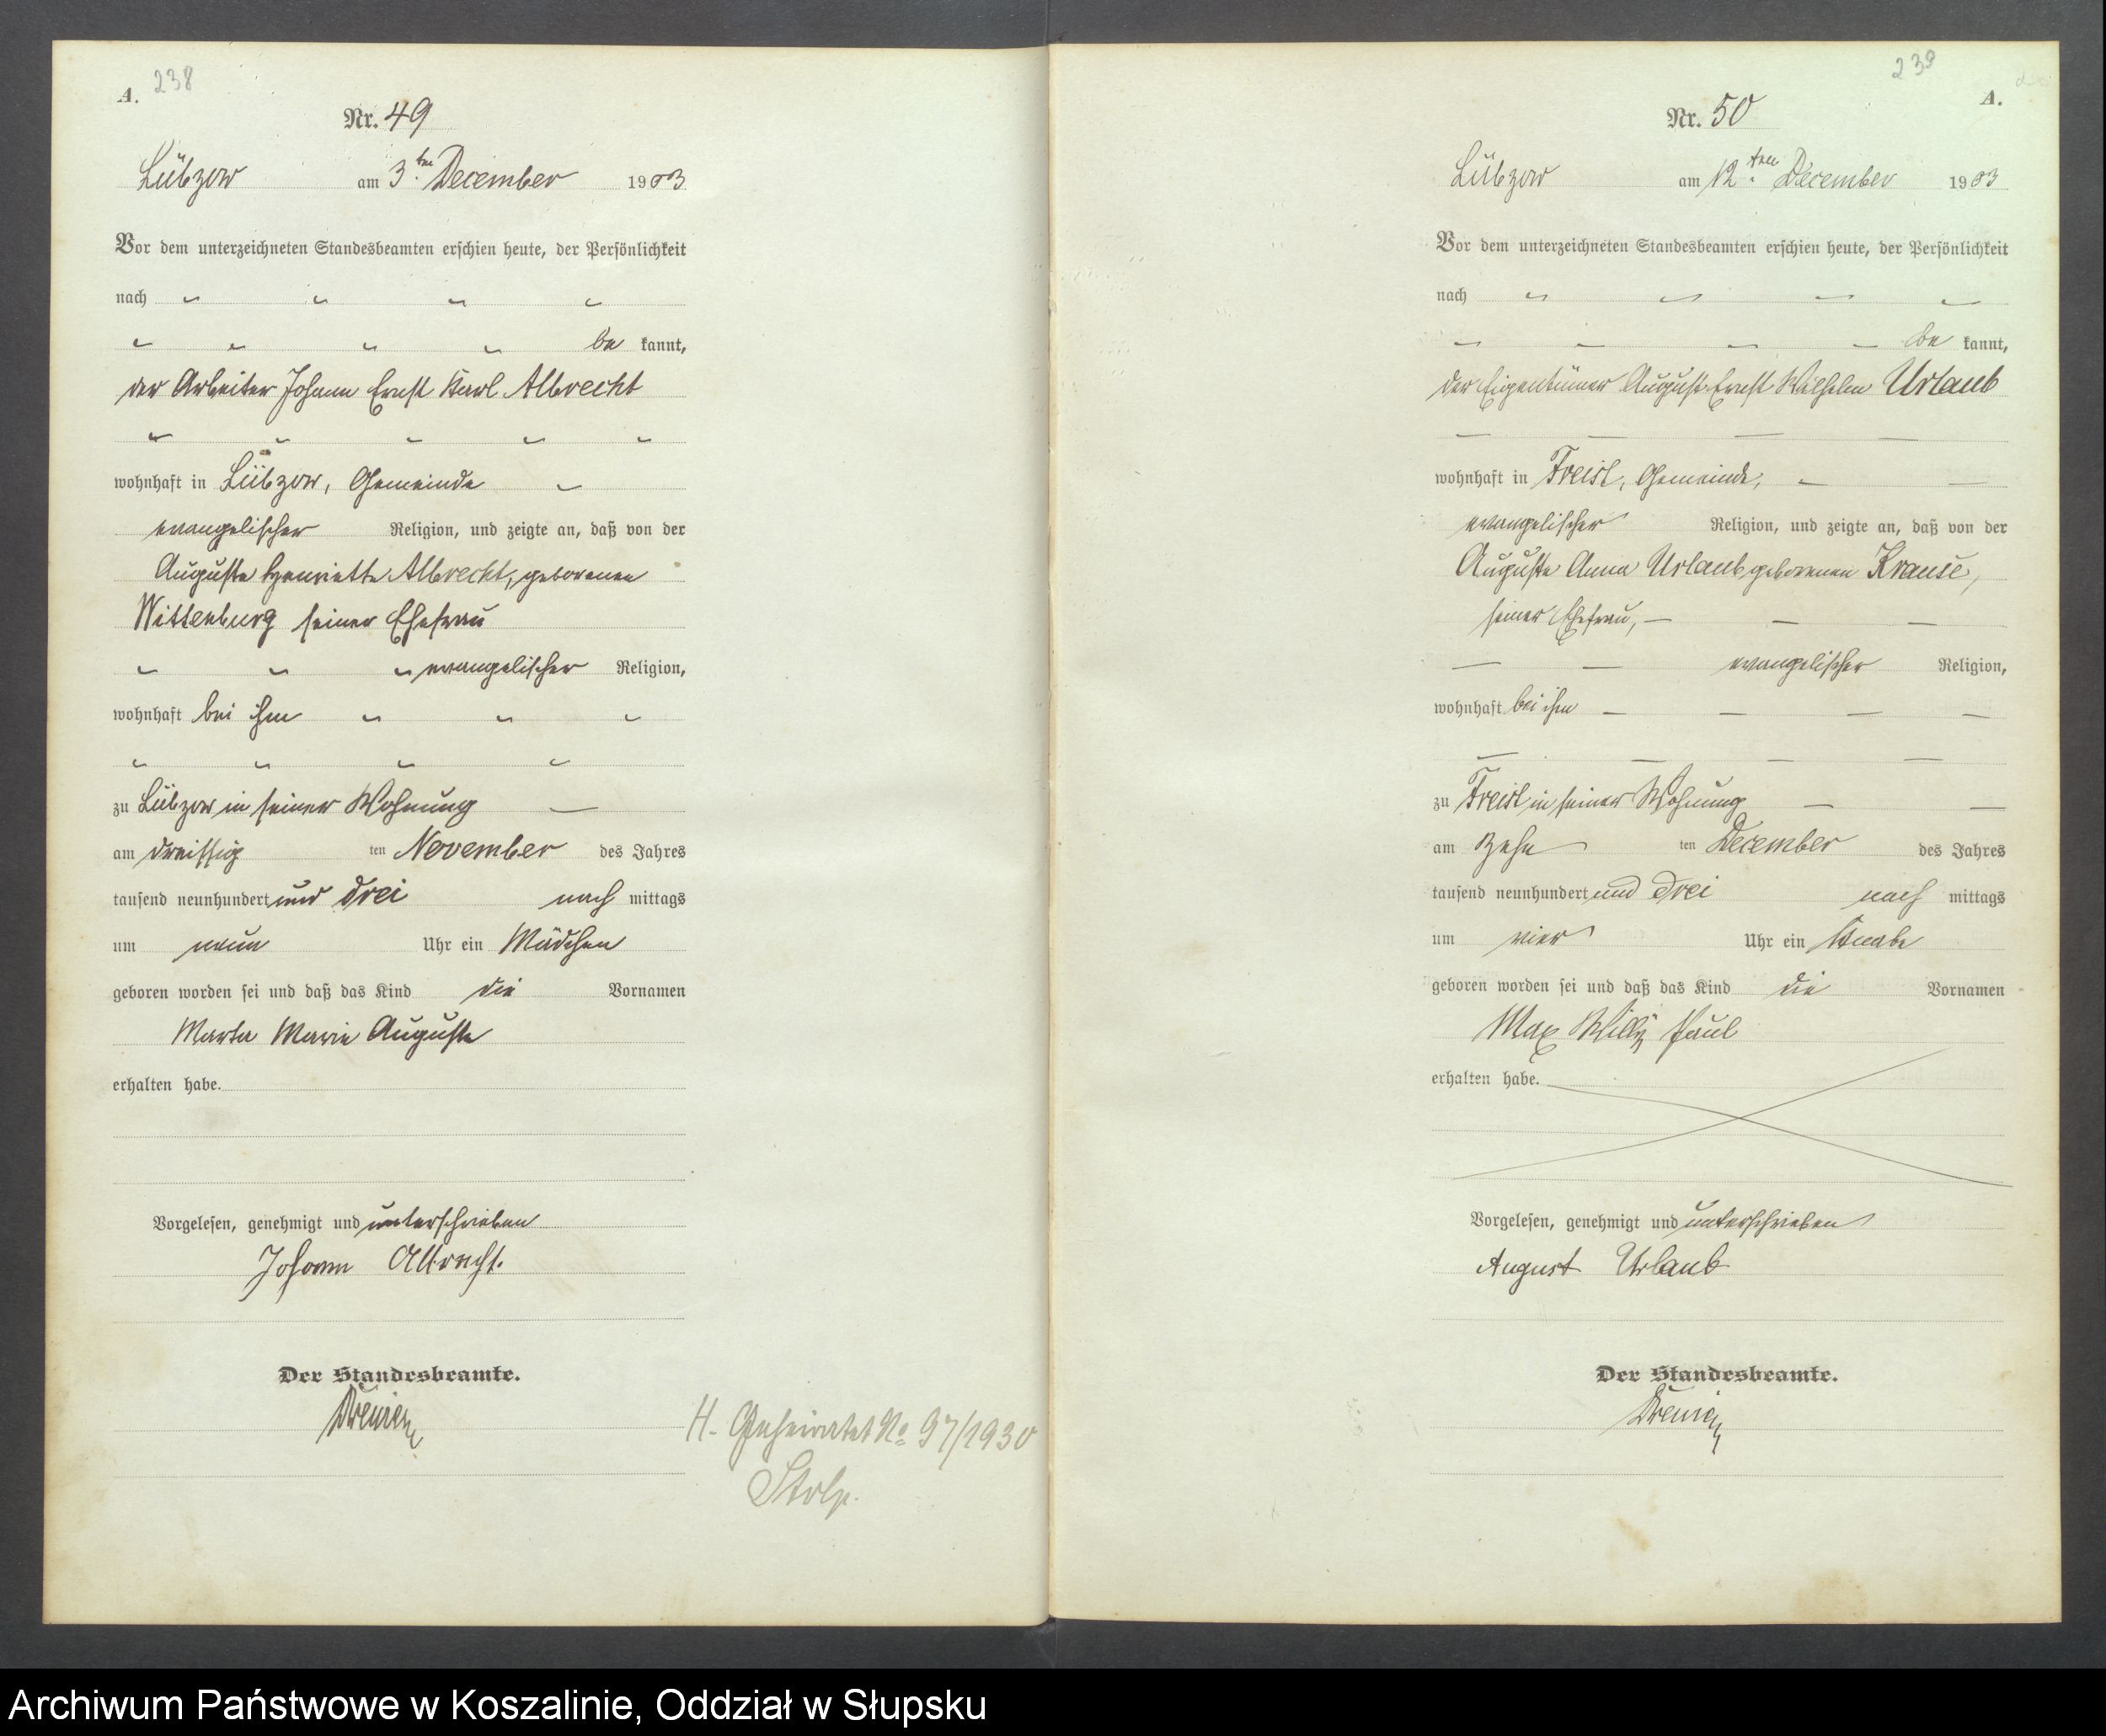 A. 238
Nr. 49
Lübzow am 3ten December 1903
Vor dem unterzeichneten Standesbeamten erschien heute, der Persönlichkeit
nach
be kannt,
der Arbeiter Johann Ernst Karl Albrecht
wohnhaft in Lübzow, Gemeinde
evangelischer Religion, und zeigte an, daß von der
Auguste Henriette Albrecht, geborenen
Wittenburg seiner Ehefrau
evangelischer Religion,
wohnhaft bei ihm
zu Lübzow in seiner Wohnung
am dreissig ten November des Jahres
tausend neunhundert und drei nach mittags
um neun Uhr ein Mädchen
geboren worden sei und daß das Kind die Vornamen
Marta Marie Auguste
erhalten habe.
Vorgelesen, genehmigt und unterschrieben
Johann Albrecht.
Der Standesbeamte.
H. Geheiratet No 97/1930
Stolp.
239
A.
Nr. 50
Lübzow am 12ten December 1903
Vor dem unterzeichneten Standesbeamten erschien heute, der Persönlichkeit
nach
be kannt,
der Eigentümer August Ernst Wilhelm Urlaub
wohnhaft in Freist, Gemeinde,
evangelischer Religion, und zeigte an, daß von der
Auguste Anna Urlaub geborenen Krause,
seiner Ehefrau,
evangelischer Religion,
wohnhaft bei ihm
zu Freist in seiner Wohnung
am Zehn ten December des Jahres
tausend neunhundert und drei nach mittags
um vier Uhr ein Knabe
geboren worden sei und daß das Kind die Vornamen
Max Willy Paul
erhalten habe.
Vorgelesen, genehmigt und unterschrieben
August Urlaub
Der Standesbeamte.
Archiwum Państwowe w Koszalinie, Oddział w Słupsku